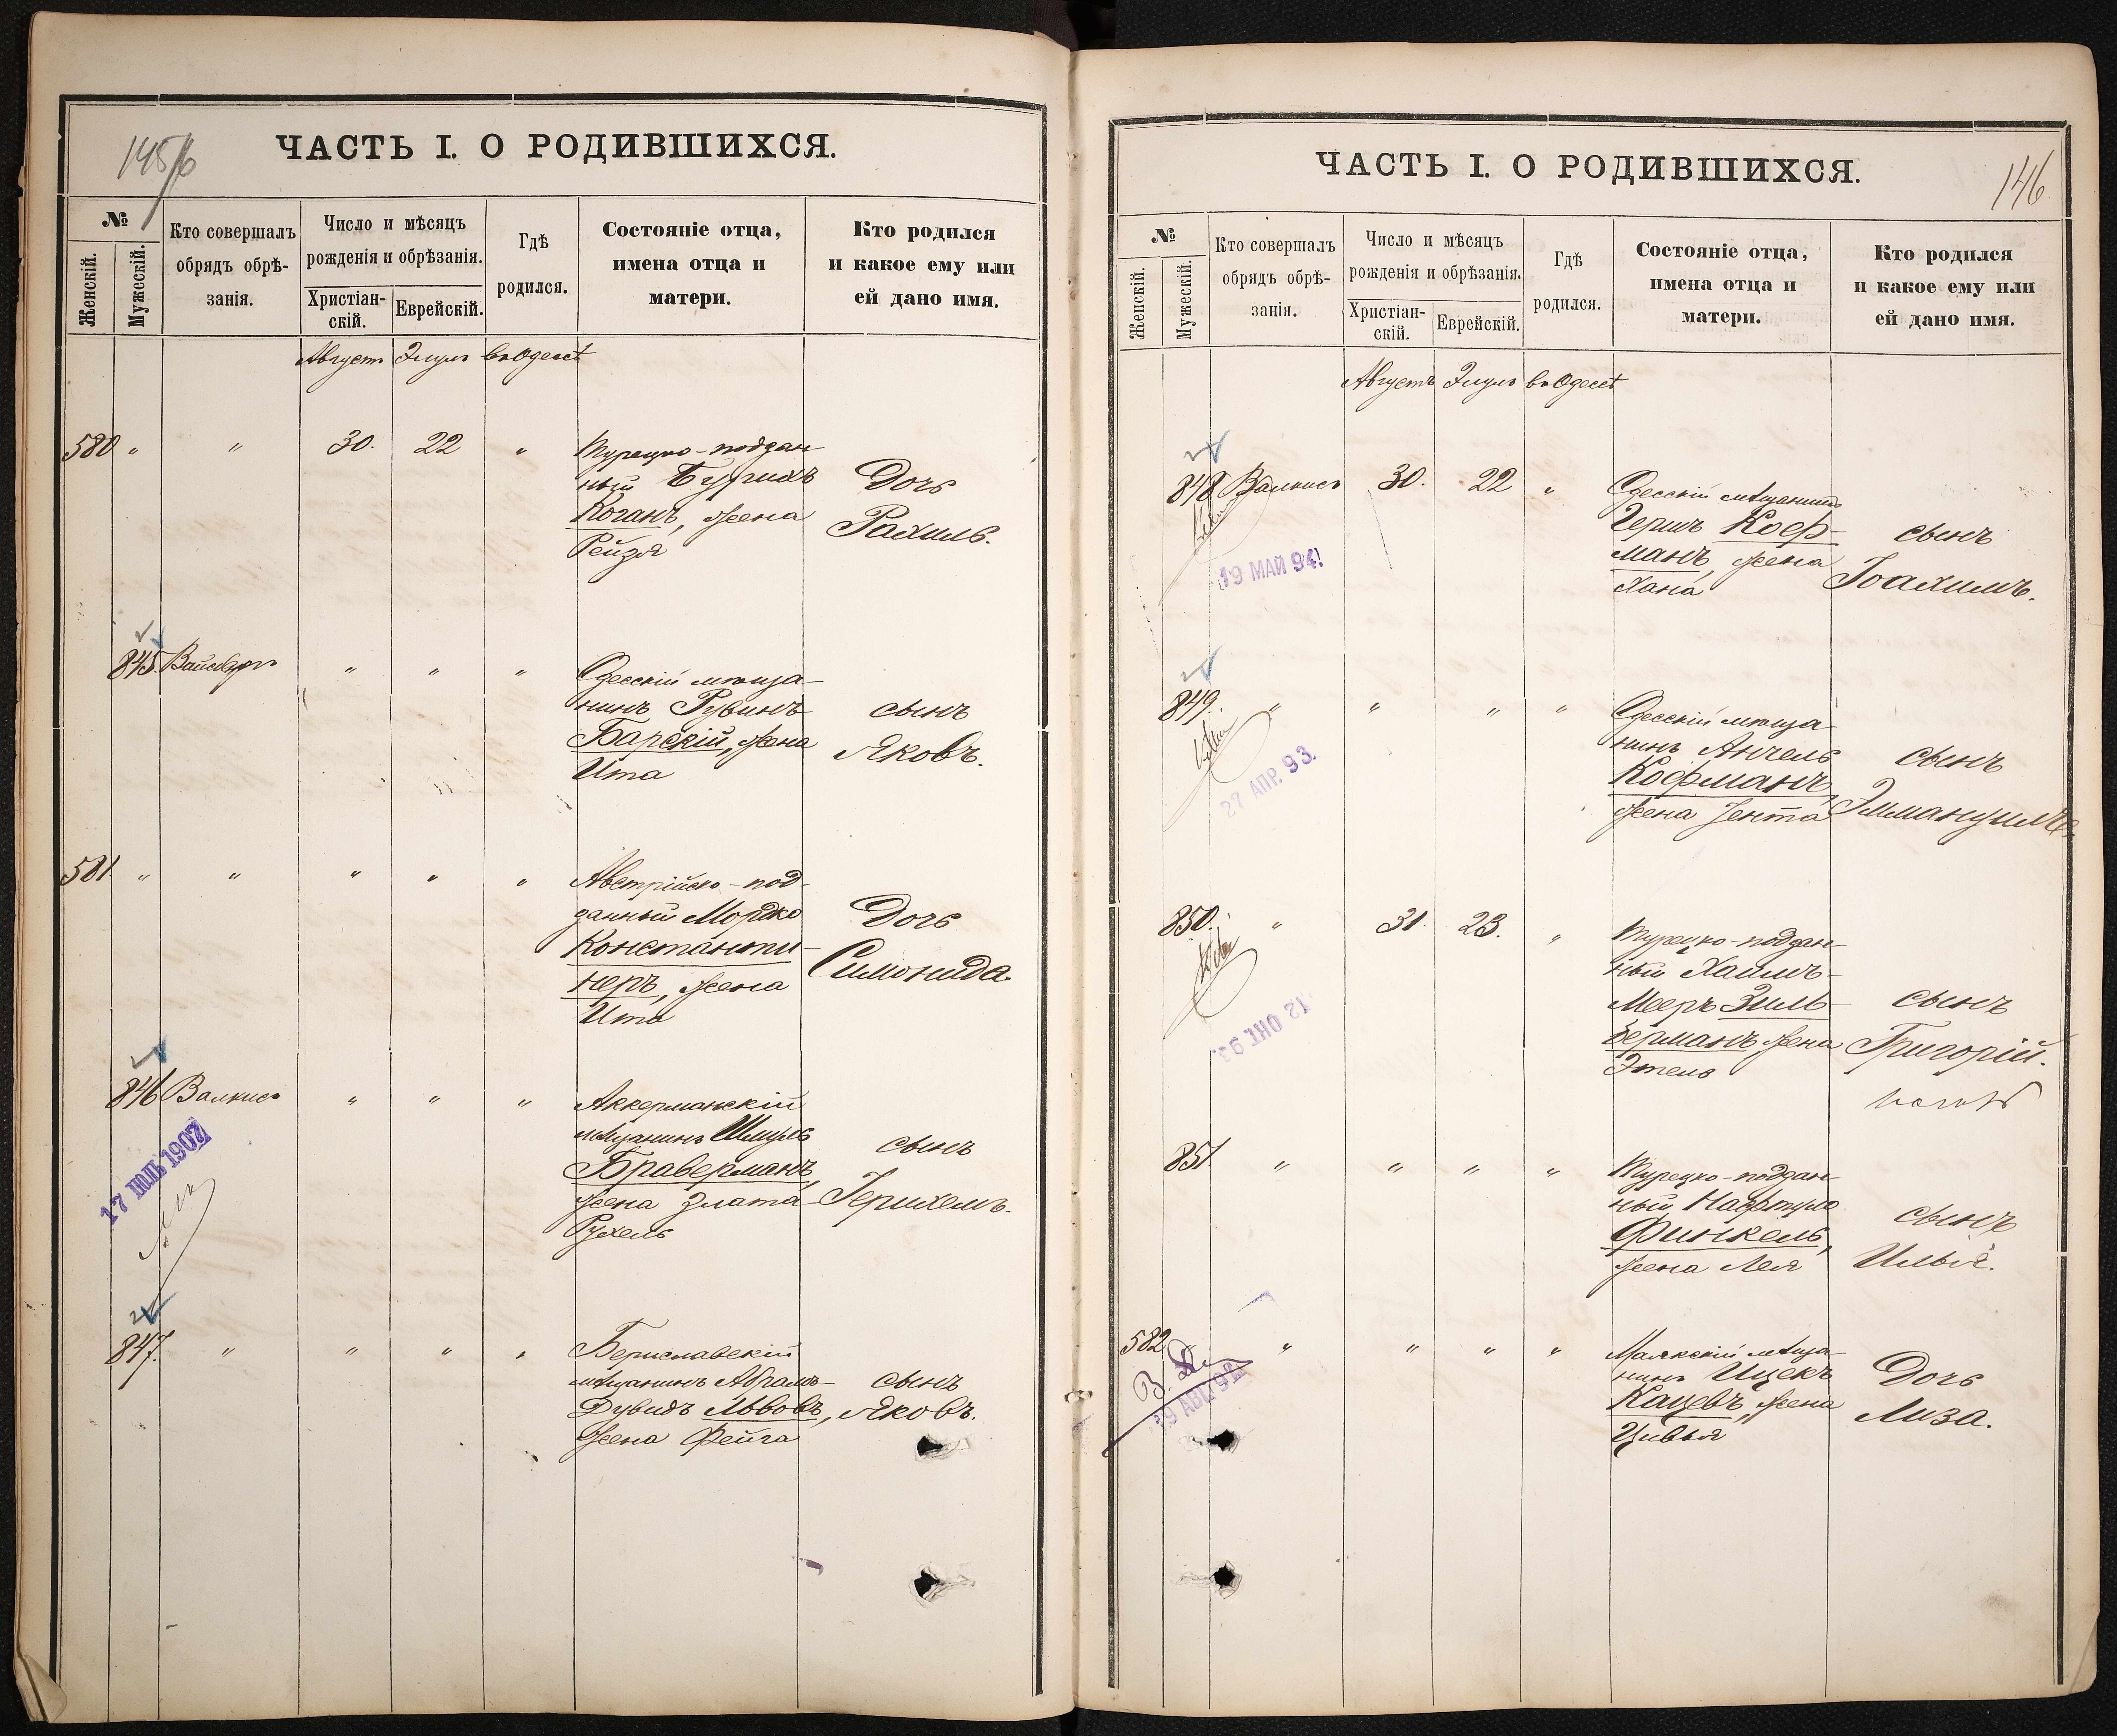 145/6
ЧАСТЬ I. О РОДИВШИХСЯ.
№
Женскій.
Мужескій.
Кто совершалъ
обрядъ обрѣ-
занія.
Число и мѣсяцъ
рожденія и обрѣзанія.
Христіан-
скій.
Еврейскій.
Гдѣ
родился.
Состояніе отца,
имена отца и
матери.
Кто родился
и какое ему или
ей дано имя.
Августъ Элулъ въ Одессѣ
580 " " 30. 22 "
Турецко-поддан-
ный
Коганъ, жена
Рейзя
Дочь
Рахиль.
845 Вайсбергъ " " "
Одесскій мѣща-
нинъ Рувинъ
Барскій, жена
Ита
сынъ
Яковъ.
581 " " " " "
Австрійско-под-
данный Мордко
Константи-
неръ, жена
Ита
Дочь
Симонида.
846 Валкисъ " " "
17 ІЮЛЬ 1907
Аккерманскій
мѣщанинъ Шмуль
Браверманъ,
жена Злата-
Рухель
сынъ
Іерихемъ.
847. " " " " "
Бериславскій
мѣщанинъ Абрамъ-
Дувидъ Львовъ,
жена Фейга
сынъ
Яковъ.
146
ЧАСТЬ I. О РОДИВШИХСЯ.
№
Женскій.
Мужескій.
Кто совершалъ
обрядъ обрѣ-
занія.
Число и мѣсяцъ
рожденія и обрѣзанія.
Христіан-
скій.
Еврейскій.
Гдѣ
родился.
Состояніе отца,
имена отца и
матери.
Кто родился
и какое ему или
ей дано имя.
Августъ Элулъ въ Одессѣ
848 Валкисъ 30. 22 "
19 МАЙ 94
Одесскій мѣщанинъ
Гершъ Коф-
манъ, жена
Хана
сынъ
Іоахимъ.
849. " " " "
27 АПР. 93.
Одесскій мѣща-
нинъ Анчель
Кофманъ,
жена Іента
сынъ
Эммануилъ.
850. " 31. 23. "
12 ОКТ 93.
Турецко-поддан-
ный Хаимъ-
Мееръ Зиль-
берманъ, жена
Этель
сынъ
Григорій.
851 " " " "
Турецко-поддан-
ный Нафтуло
Финкель,
жена Лея
сынъ
Илья.
582 " " " "
Маякскій мѣща-
нинъ Ицекъ
Кацевъ, жена
Цивья
Дочь
Лиза.